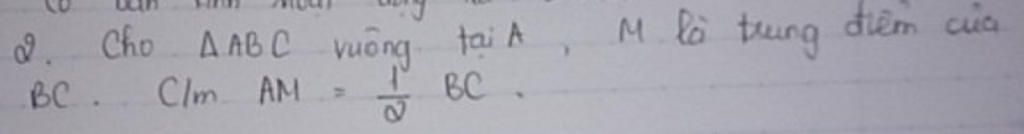 2. Cho ΔABC vuông tại A, M là trung điểm của
BC. C/m AM = 1/2 BC.